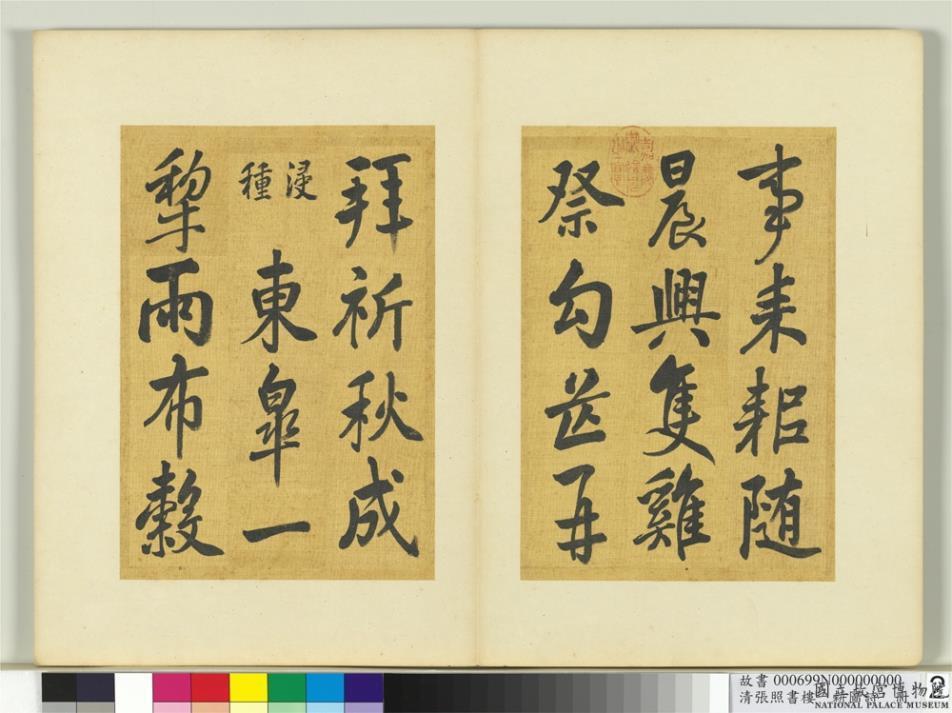 事耒耜随
晨興隻雞
祭勾芒再
拜祈秋成
浸種
東皋一
犂雨布穀
故書 000699N000000000
清張照書樓
2
國立故宮博物院
NATIONAL PALACE MUSEUM